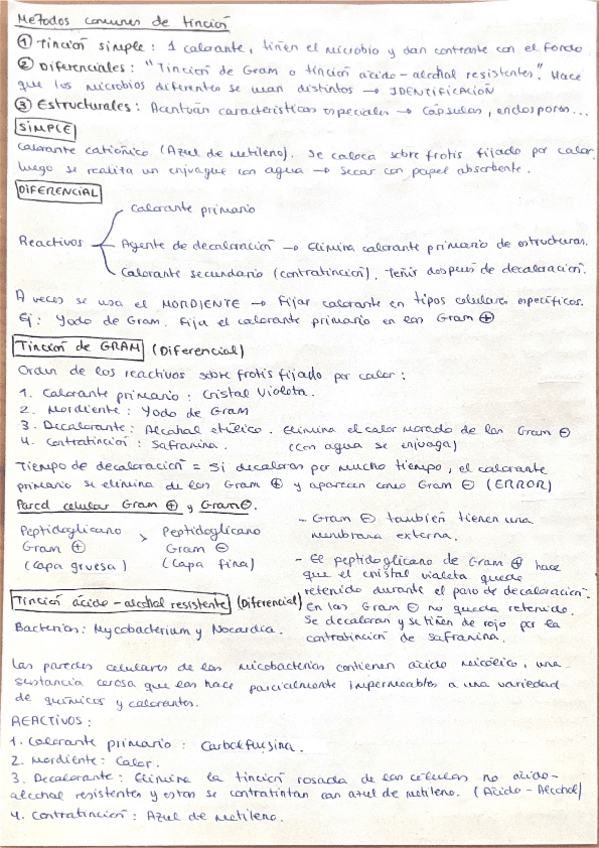 Métodos comunes de tinción
① Tinción simple: 1 colorante, tiñen el microbio y dan contraste con el fondo
② Diferenciales: "Tinción de Gram o tinción ácido-alcohol resistentes". Hace
que los microbios diferentes se vean distintos → IDENTIFICACIÓN
③ Estructurales: Acentúan características especiales → Cápsulas, endosporas...
SIMPLE
Colorante catiónico (Azul de metileno). Se coloca sobre frotis fijado por calor,
luego se realiza un enjuague con agua → Secar con papel absorbente.
DIFERENCIAL
Colorante primario
Reactivos
Agente de decoloración → Elimina colorante primario de estructuras.
Colorante secundario (contratinción). Teñir después de decoloración.
A veces se usa el MORDIENTE → Fijar colorante en tipos celulares específicos.
Ej: Yodo de Gram. Fija el colorante primario en las Gram ⊕
Tinción de GRAM (Diferencial)
Orden de los reactivos sobre frotis fijado por calor:
1. Colorante primario: Cristal Violeta.
2. Mordiente: Yodo de Gram
3. Decolorante: Alcohol etílico. Elimina el color morado de las Gram ⊖
4. Contratinción: Safranina. (Con agua se enjuaga)
Tiempo de decoloración = Si decoloras por mucho tiempo, el colorante
primario se elimina de las Gram ⊕ y aparecen como Gram ⊖ (ERROR)
Pared celular Gram ⊕ y Gram⊖.
Peptidoglicano > Peptidoglicano
Gram ⊕ Gram ⊖
(Capa gruesa) (Capa fina)
- Gram ⊖ también tienen una
membrana externa.
- El peptidoglicano de Gram ⊕ hace
que el cristal violeta quede
retenido durante el paso de decoloración.
En las Gram ⊖ no queda retenido.
Se decoloran y se tiñen de rojo por la
contratinción de safranina.
Tinción ácido-alcohol resistente (Diferencial)
Bacterias: Mycobacterium y Nocardia.
Las paredes celulares de las micobacterias contienen ácido micólico, una
sustancia cerosa que las hace parcialmente impermeables a una variedad
de químicos y colorantes.
REACTIVOS:
1. Colorante primario: Carbolfucsina.
2. Mordiente: Calor.
3. Decolorante: Elimina la tinción rosada de las células no ácido-
alcohol resistentes y estas se contratintan con azul de metileno. (Ácido-Alcohol)
4. Contratinción: Azul de metileno.